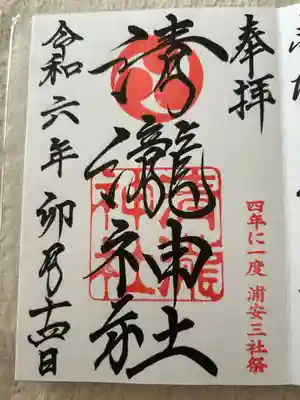 奉拝
四年に一度 浦安三社祭
清瀧神社
清瀧神社
令和六年 卯月十四日